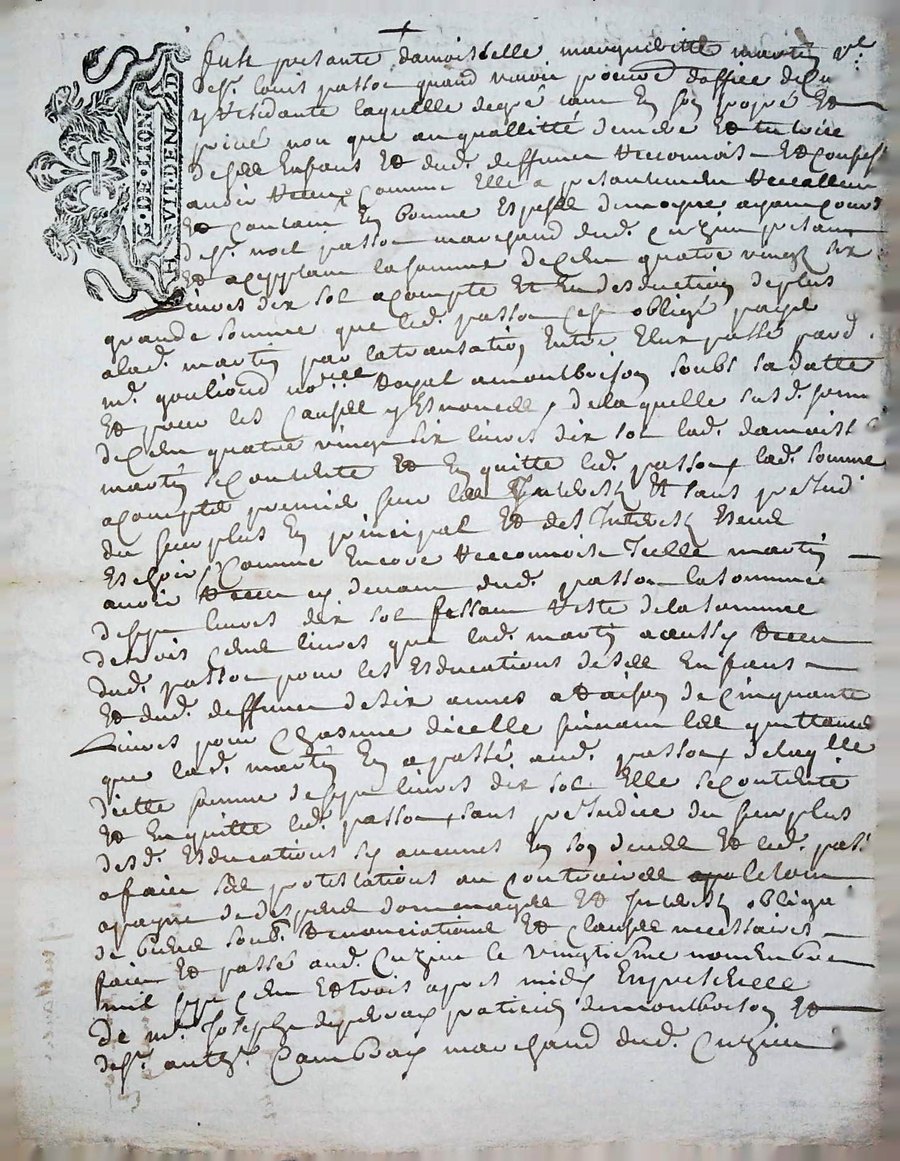 G. DE LION
HVIT DEN. 2D
Fust presante damoiselle margueritte martin vve
de sr. louis passon quand vivoit pourvu doffice de la
residante laquelle degré tam En son propre Et
privé nom que au quallitté de mere Et tutrice
de ses Enfans Et dud. deffunct Reconnois Et confesse
avoir Receu Comme Elle a presantement Reallem
Et contant En bonne Espesse de monoye ayant cours
de sr. noel passon marchand dud. Cuzieu presant
Et acepptant la somme de Cent quatre vingt six
Livres dix sol acompte Et En desduction de plus
grande somme que led. passon cest obligé payé
a lad. martin par la transation Entre Elux passé pard.
me. gouliond nore. Royal a montbrison soubs sa datte
Et pour les Causes y Esnoncés, de laquelle susd. somme
de Cent quatre vingt six livres dix sol lad. damoiselle
martin se contente Et En quitte led. passon lad. somme
acompte premier sur les Interests Et sans prejud
du surplus En principal Et des Interests Escus
Eschoir, Comme Encore Reconnois Icelle martin
avoir Receu cy devant dud. passon la somme
de sept livres dix sol fessant Reste de la somme
de trois Cent livres que lad. martin a aussy Receu
dud. passon pour les Esducations de ses Enfans
Et dud. deffunct de six annes a Raison de cinquante
Livres pour Chasune dicelle suivant les quittances
que lad. martin En a passé aud. passon de laqlle
ditte somme de sept livres dix sol Elle se contente
Et En quitte led. passon sans prejudice du surplus
desd. Esducations sy aucunes En son deues Et led. pass
a faict ses protestations au contraire
apayne de despens domages Et Interests obliga
de biens soub. Renonciations Et clauses necessaires
faict Et passé aud. Cuzieu le vingtiesme novembre
mil sept cent Et trois apres midy En presence
de me. Joseph praticien de montbrison Et
de sr. anth. marchand dud. Cuzieu